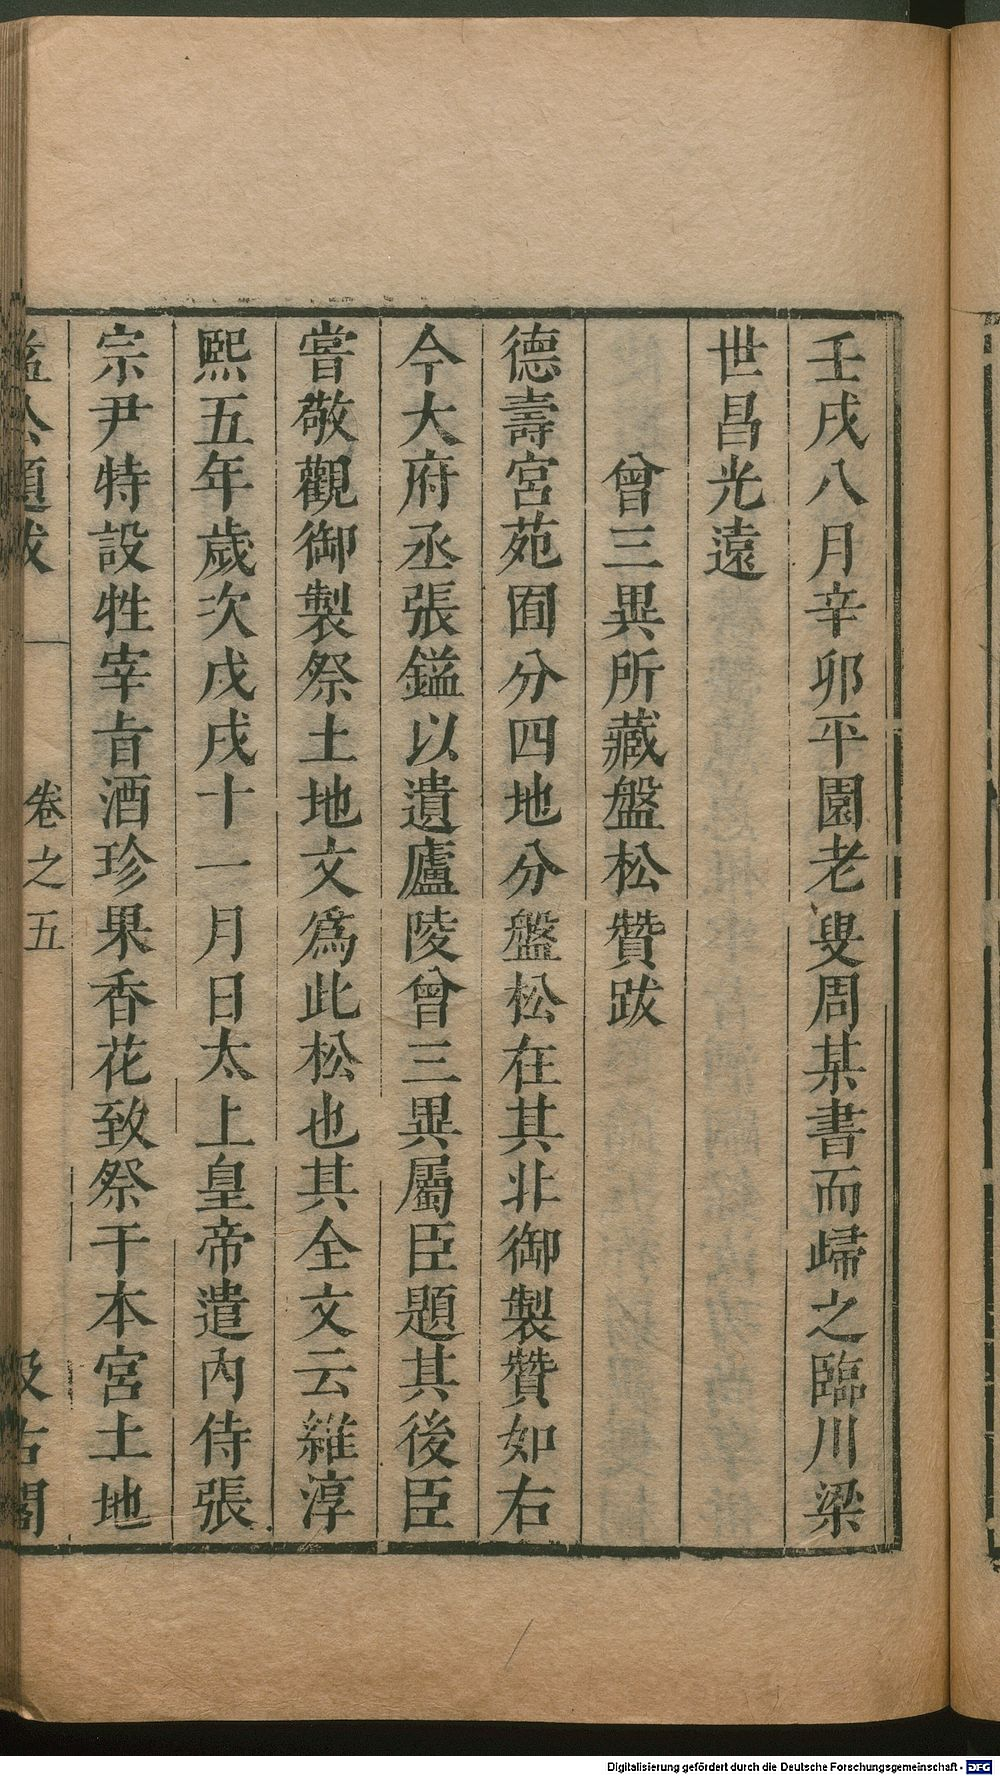 壬戌八月辛卯平園老叟周某書而歸之臨川梁
世昌光遠
曾三異所藏盤松贊跋
德壽宮苑囿分四地分盤松在其非御製贊如右
今大府丞張鎰以遺廬陵曾三異屬臣題其後臣
嘗敬觀御製祭土地文爲此松也其全文云維淳
熙五年歲次戊戌十一月日太上皇帝遣內侍張
宗尹特設牲宰㫖酒珍果香花致祭于本宮土地
益公題跋 卷之五 汲古閣
Digitalisierung gefördert durch die Deutsche Forschungsgemeinschaft - DFG